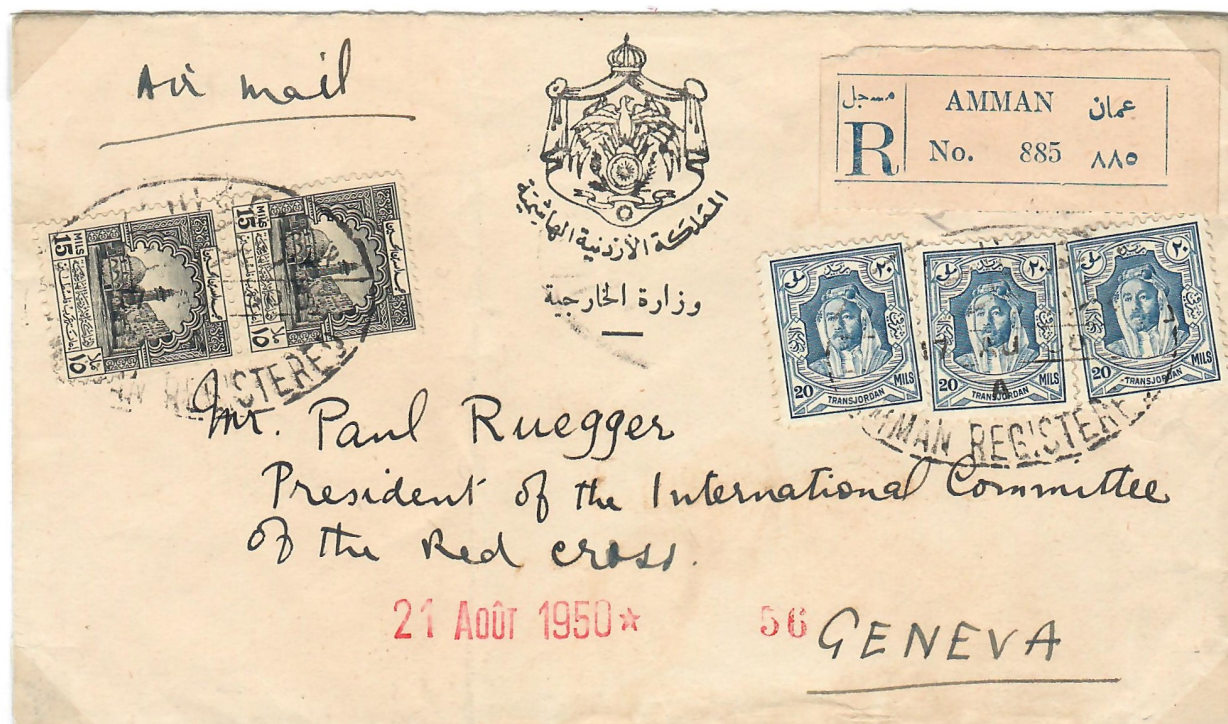 Air mail
المملكة الأردنية الهاشمية
وزارة الخارجية
مسجل
R
AMMAN عمان
No. 885 ٨٨٥
MILS 15
١٥
MILS 15
١٥
٢٠
20 MILS
TRANSJORDAN
٢٠
20 MILS
TRANSJORDAN
٢٠
20 MILS
TRANSJORDAN
AMMAN REGISTERED
Mr. Paul Ruegger
President of the International Committee
of the Red cross.
21 AOÛT 1950★ 56
GENEVA